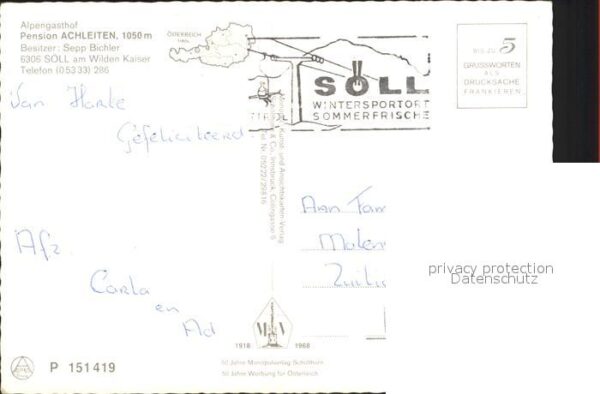 Alpengasthof
Pension ACHLEITEN, 1050 m
Besitzer: Sepp Bichler
6306 SÖLL am Wilden Kaiser
Telefon (0 53 33) 286
ÖSTERREICH
TIROL
SÖLL
WINTERSPORTORT
SOMMERFRISCHE
BIS ZU 5
GRUSSWORTEN
ALS
DRUCKSACHE
FRANKIEREN
Van Harte
Gefeliciteerd.
Kunst- und Ansichtskarten-Verlag
& Co., Innsbruck, Collingasse 6
Tel. Nr. 05222/29816
Aan Fam
Molen
Afz.
Carla
en
Ad
privacy protection
Datenschutz
1918 1968
50 Jahre Monopolverlag Schöllhorn
50 Jahre Werbung für Österreich
P 151419